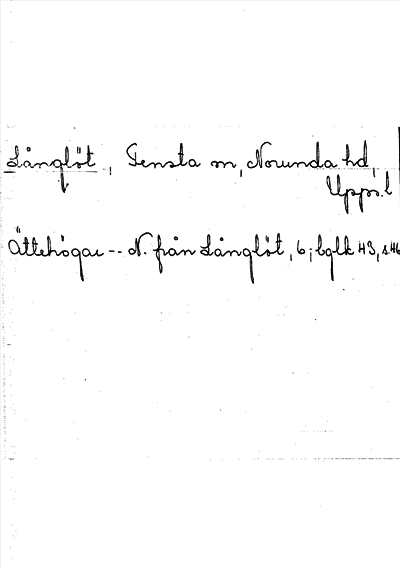 Långlöt, Tensta sn, Norunda hd,
Upps.l
Ättehögar -- N. från Långlöt, 6; bglk 43, s.46